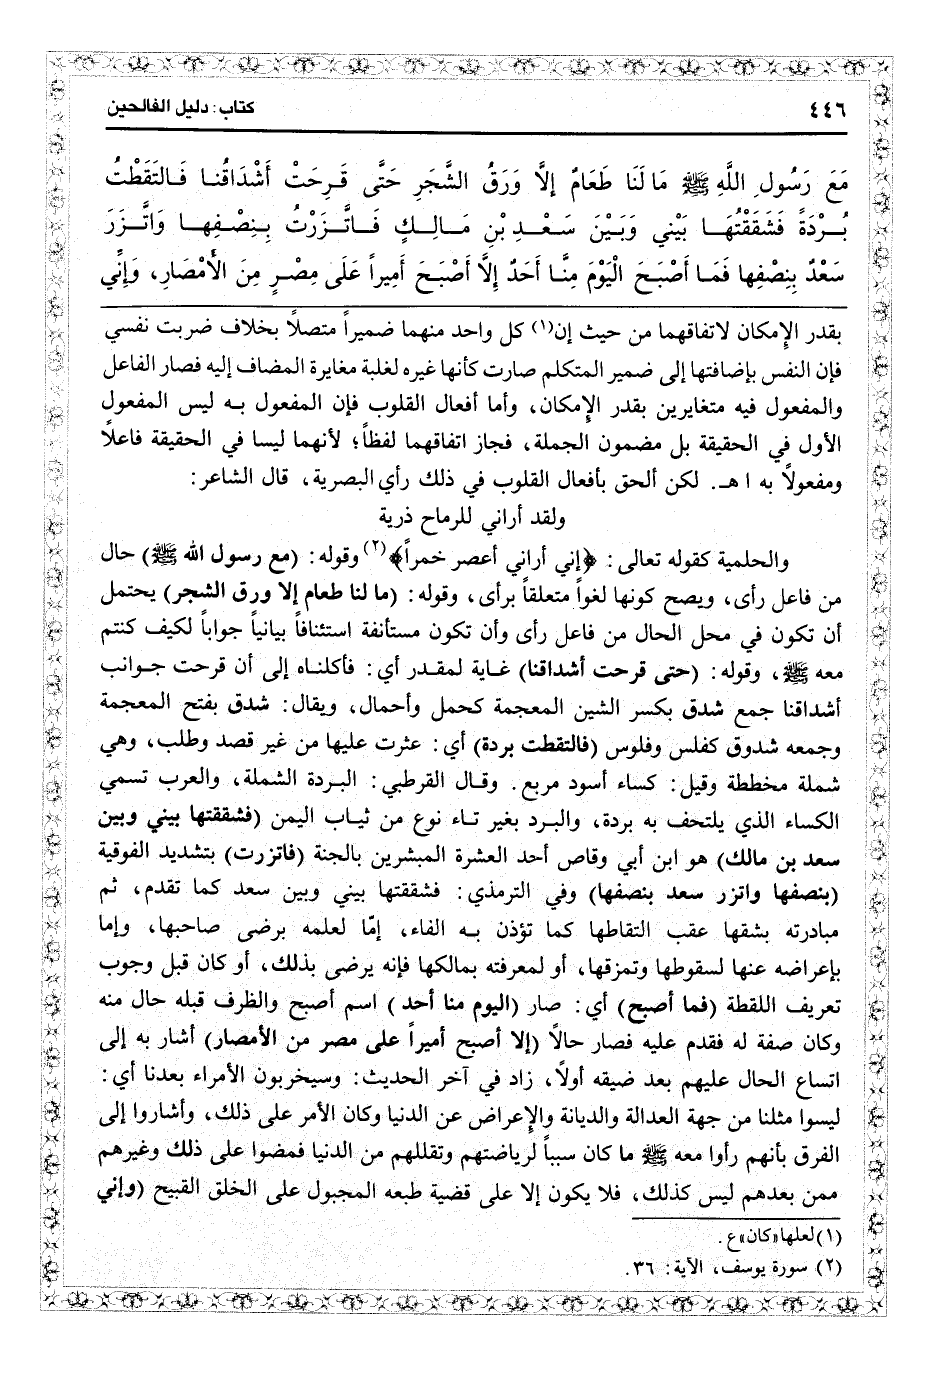 ٤٤٦
كتاب: دليل الفالحين
مَعَ رَسُولِ اللَّهِ ﷺ مَا لَنَا طَعَامٌ إِلَّا وَرَقُ الشَّجَرِ حَتَّى قَرِحَتْ أَشْدَاقُنا فَالتَقَطْتُ
بُرْدَةً فَشَقَقْتُهَا بَيْنِي وَبَيْنَ سَعْدِ بْنِ مَالِكٍ فَاتَّزَرْتُ بِنِصْفِها وَاتَّزَرَ
سَعْدٌ بِنِصْفِها فَمَا أَصْبَحَ الْيَوْمَ مِنَّا أَحَدٌ إِلَّا أَصْبَحَ أَمِيراً عَلَى مِصْرٍ مِنَ الأَمْصَارِ، وَإِنِّي
بقدر الإمكان لاتفاقهما من حيث إن(١) كل واحد منهما ضميراً متصلاً بخلاف ضربت نفسي
فإن النفس بإضافتها إلى ضمير المتكلم صارت كأنها غيره لغلبة مغايرة المضاف إليه فصار الفاعل
والمفعول فيه متغايرين بقدر الإمكان، وأما أفعال القلوب فإن المفعول به ليس المفعول
الأول في الحقيقة بل مضمون الجملة، فجاز اتفاقهما لفظاً؛ لأنهما ليسا في الحقيقة فاعلاً
ومفعولاً به ا هـ. لكن ألحق بأفعال القلوب في ذلك رأي البصرية، قال الشاعر:
ولقد أراني للرماح ذرية
والحلمية كقوله تعالى: ﴿إني أراني أعصر خمراً﴾(٢) وقوله: (مع رسول الله ﷺ) حال
من فاعل رأى، ويصح كونها لغواً متعلقاً برأى، وقوله: (ما لنا طعام إلا ورق الشجر) يحتمل
أن تكون في محل الحال من فاعل رأى وأن تكون مستأنفة استئنافاً بيانياً جواباً لكيف كنتم
معه ﷺ، وقوله: (حتى قرحت أشداقنا) غاية لمقدر أي: فأكلناه إلى أن قرحت جوانب
أشداقنا جمع شدق بكسر الشين المعجمة كحمل وأحمال، ويقال: شدق بفتح المعجمة
وجمعه شدوق كفلس وفلوس (فالتقطت بردة) أي: عثرت عليها من غير قصد وطلب، وهي
شملة مخططة وقيل: كساء أسود مربع. وقال القرطبي: البردة الشملة، والعرب تسمي
الكساء الذي يلتحف به بردة، والبرد بغير تاء نوع من ثياب اليمن (فشققتها بيني وبين
سعد بن مالك) هو ابن أبي وقاص أحد العشرة المبشرين بالجنة (فاتزرت) بتشديد الفوقية
(بنصفها واتزر سعد بنصفها) وفي الترمذي: فشققتها بيني وبين سعد كما تقدم، ثم
مبادرته بشقها عقب التقاطها كما تؤذن به الفاء، إمّا لعلمه برضى صاحبها، وإما
بإعراضه عنها لسقوطها وتمزقها، أو لمعرفته بمالكها فإنه يرضى بذلك، أو كان قبل وجوب
تعريف اللقطة (فما أصبح) أي: صار (اليوم منا أحد) اسم أصبح والظرف قبله حال منه
وكان صفة له فقدم عليه فصار حالًا (إلا أصبح أميراً على مصر من الأمصار) أشار به إلى
اتساع الحال عليهم بعد ضيقه أولًا، زاد في آخر الحديث: وسيخربون الأمراء بعدنا أي:
ليسوا مثلنا من جهة العدالة والديانة والإعراض عن الدنيا وكان الأمر على ذلك، وأشاروا إلى
الفرق بأنهم رأوا معه ﷺ ما كان سبباً لرياضتهم وتقللهم من الدنيا فمضوا على ذلك وغيرهم
ممن بعدهم ليس كذلك، فلا يكون إلا على قضية طبعه المجبول على الخلق القبيح (وإني
(١) لعلها «كان» ع.
(٢) سورة يوسف، الآية: ٣٦.